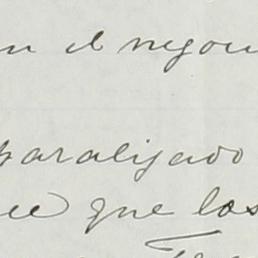 en el negoci
paralizado
ce que los